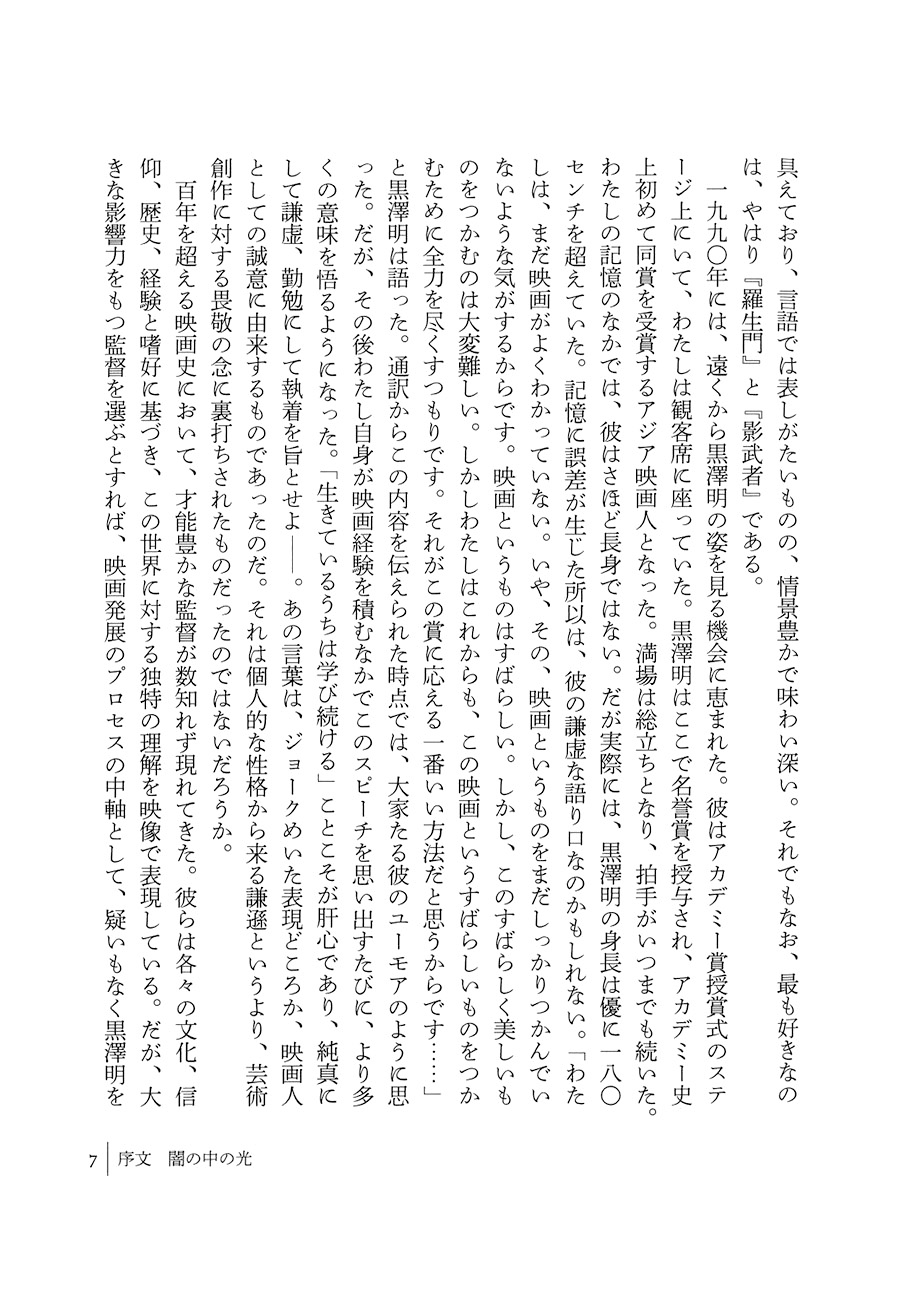 具えており、言語では表しがたいものの、情景豊かで味わい深い。それでもなお、最も好きなの
は、やはり『羅生門』と『影武者』である。
　一九九〇年には、遠くから黒澤明の姿を見る機会に恵まれた。彼はアカデミー賞授賞式のステ
ージ上にいて、わたしは観客席に座っていた。黒澤明はここで名誉賞を授与され、アカデミー史
上初めて同賞を受賞するアジア映画人となった。満場は総立ちとなり、拍手がいつまでも続いた。
わたしの記憶のなかでは、彼はさほど長身ではない。だが実際には、黒澤明の身長は優に一八〇
センチを超えていた。記憶に誤差が生じた所以は、彼の謙虚な語り口なのかもしれない。「わた
しは、まだ映画がよくわかっていない。いや、その、映画というものをまだしっかりつかんでい
ないような気がするからです。映画というものはすばらしい。しかし、このすばらしく美しいも
のをつかむのは大変難しい。しかしわたしはこれからも、この映画というすばらしいものをつか
むために全力を尽くすつもりです。それがこの賞に応える一番いい方法だと思うからです……」
と黒澤明は語った。通訳からこの内容を伝えられた時点では、大家たる彼のユーモアのように思
った。だが、その後わたし自身が映画経験を積むなかでこのスピーチを思い出すたびに、より多
くの意味を悟るようになった。「生きているうちは学び続ける」ことこそが肝心であり、純真に
して謙虚、勤勉にして執着を旨とせよ――。あの言葉は、ジョークめいた表現どころか、映画人
としての誠意に由来するものであったのだ。それは個人的な性格から来る謙遜というより、芸術
創作に対する畏敬の念に裏打ちされたものだったのではないだろうか。
　百年を超える映画史において、才能豊かな監督が数知れず現れてきた。彼らは各々の文化、信
仰、歴史、経験と嗜好に基づき、この世界に対する独特の理解を映像で表現している。だが、大
きな影響力をもつ監督を選ぶとすれば、映画発展のプロセスの中軸として、疑いもなく黒澤明を
7　序文　闇の中の光